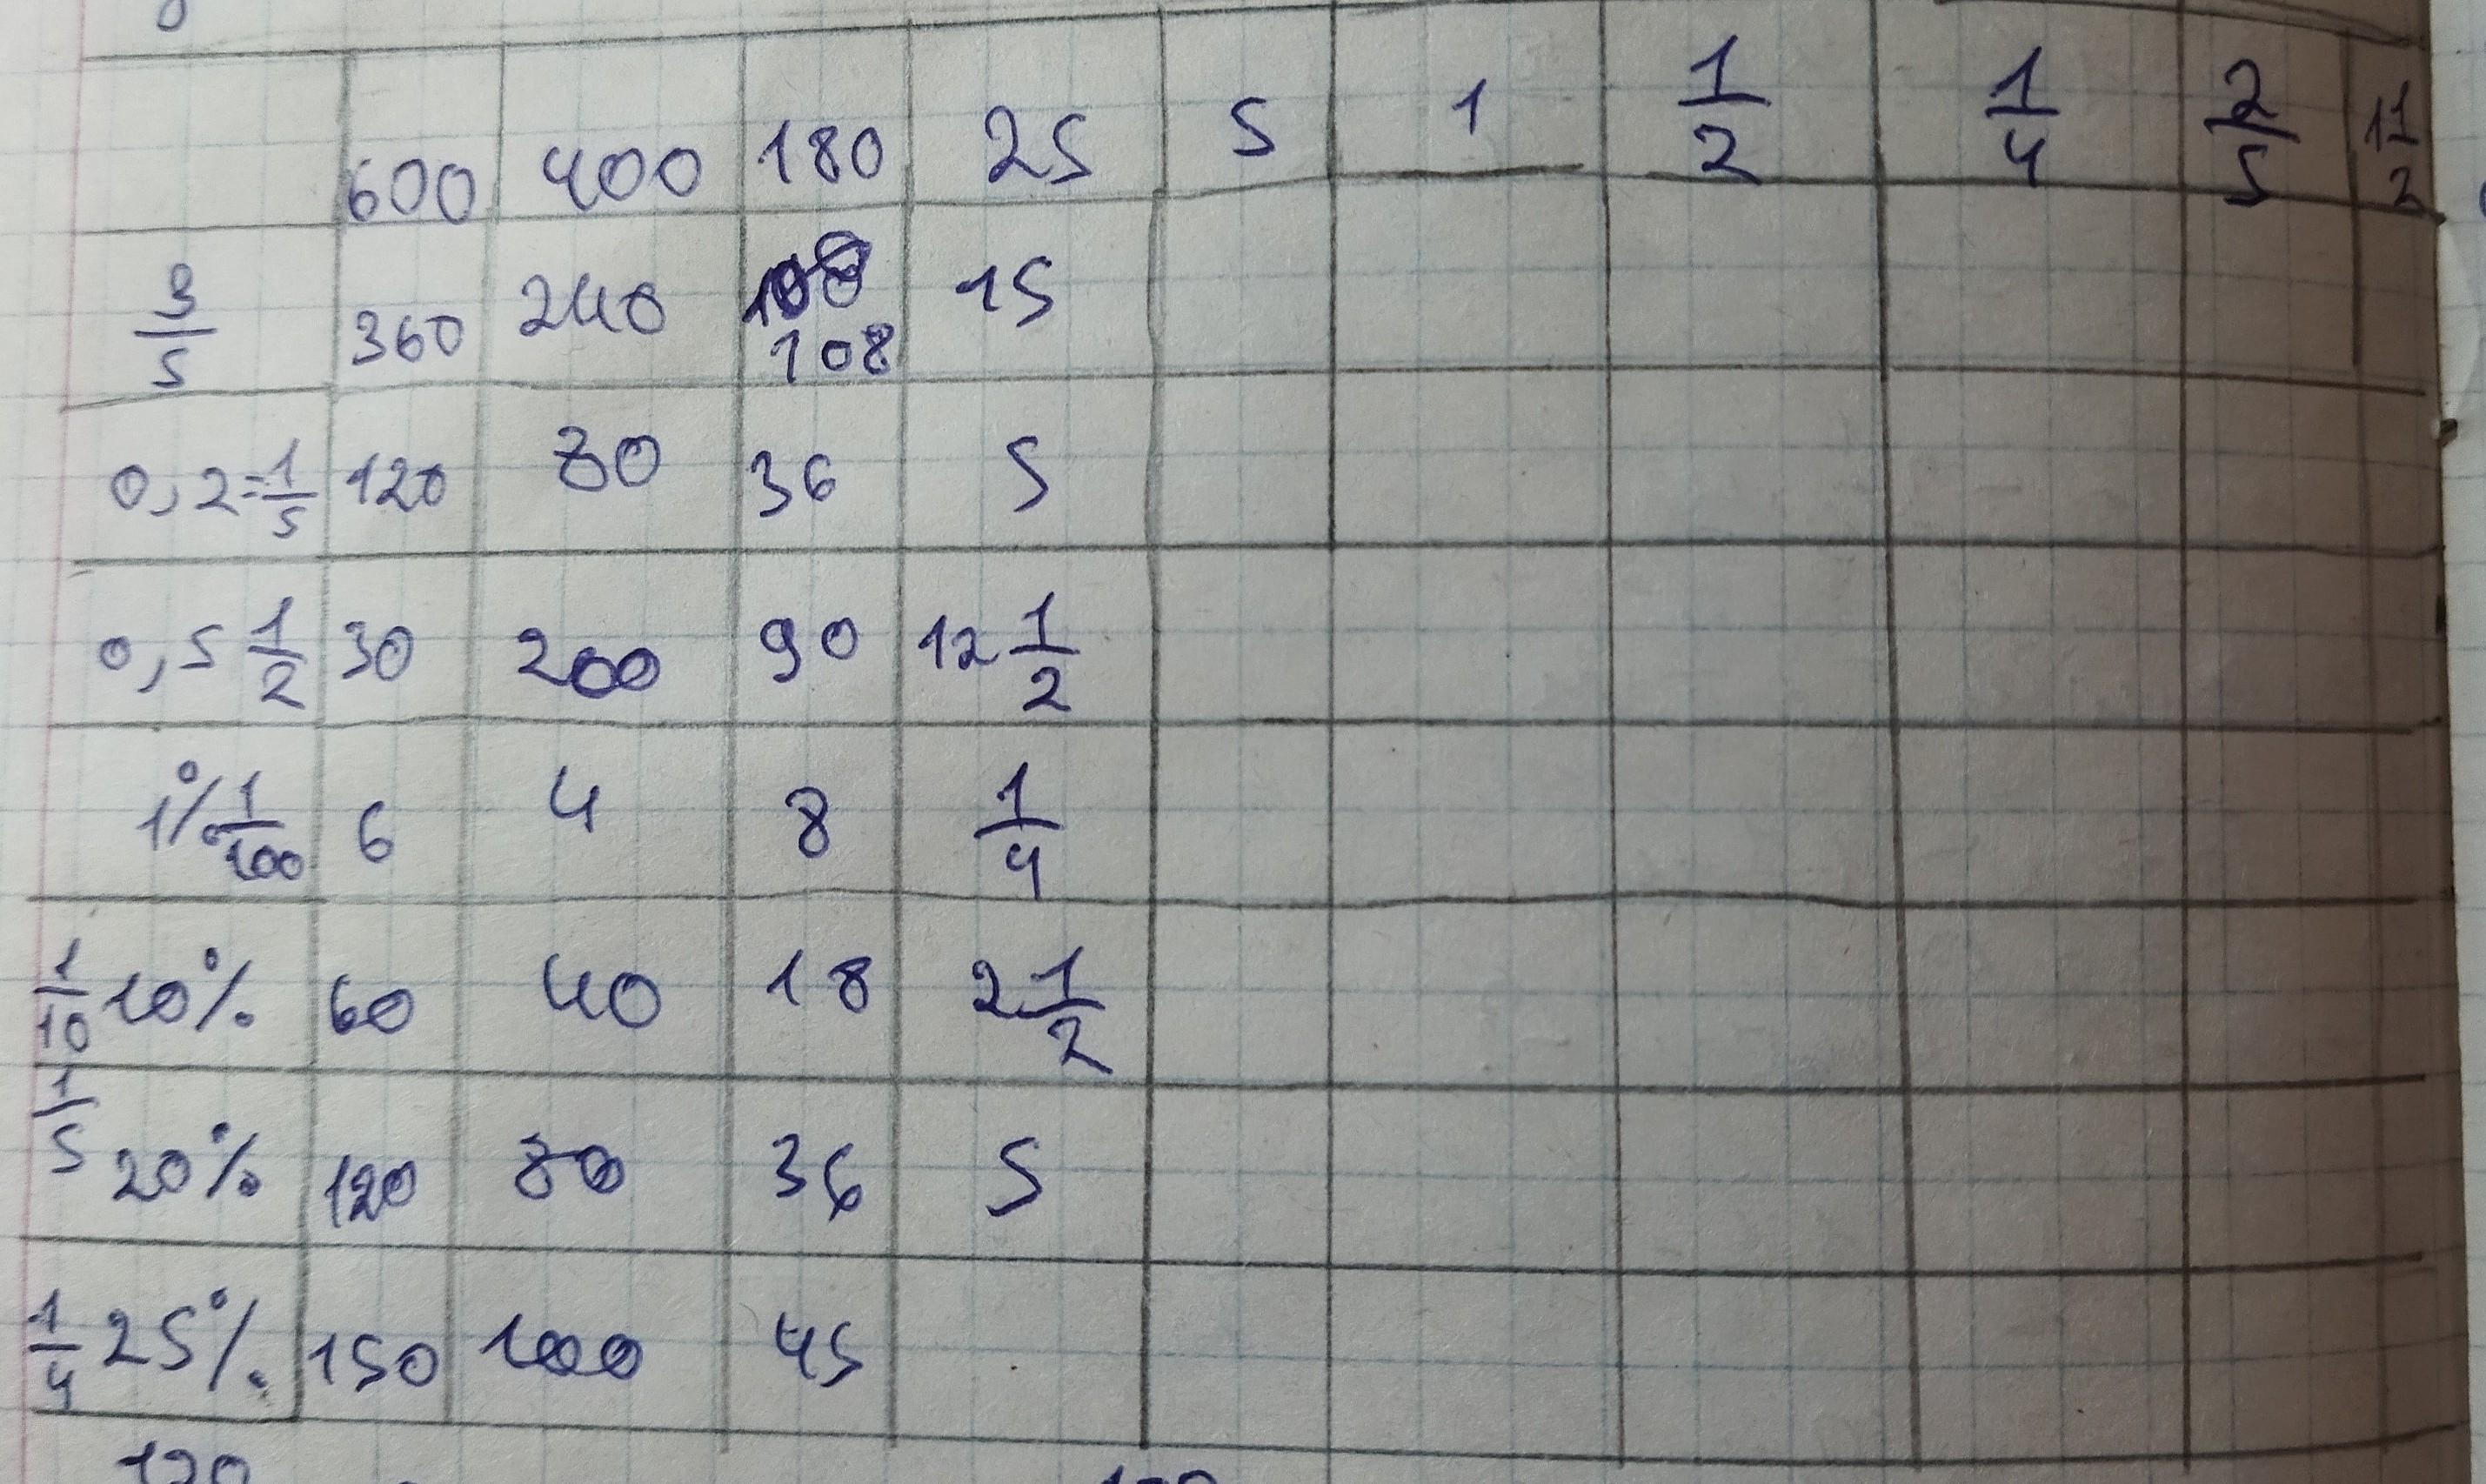 600 400 180 25 5 1 1/2 1/4 2/5 1 1/2
3/5 360 240 108 15
0,2=1/5 120 80 36 5
0,5 1/2 30 200 90 12 1/2
1% 1/100 6 4 8 1/4
1/10 10% 60 40 18 2 1/2
1/5 20% 120 80 36 5
1/4 25% 150 100 45
120